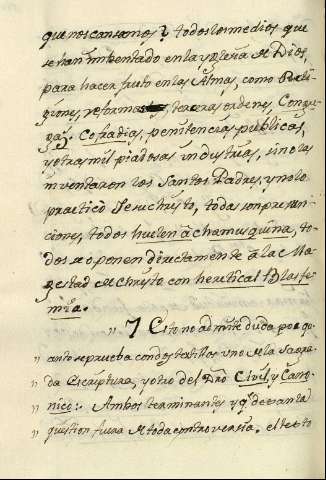 que nos cansamos? todos los medios que
se han imbentado en la yglesia de Dios,
para hacer fruto en las Almas, como Reli-
giones, reformas, terceras ordenes, Congre-
gaz. Cofradias, penitencias publicas,
y otras mil piadosas industrias, sino las
inventaron los Santos Padres, y no lo
practicò Jesuchristo, todas son preven-
ciones, todos huelen à chamusquina, to-
dos se oponen directamente à la Ma-
gestad de Christo con heretical Blasfe-
mia.
,, 7 Esto no admite duda por q.
,, quanto se prueba con dos textitos uno de la Sagra-
,, da Escriptura, y otro del Dro Civil y Cano-
,, nico: Ambos terminantes y q.
,, question fuera de toda controversia. el texto